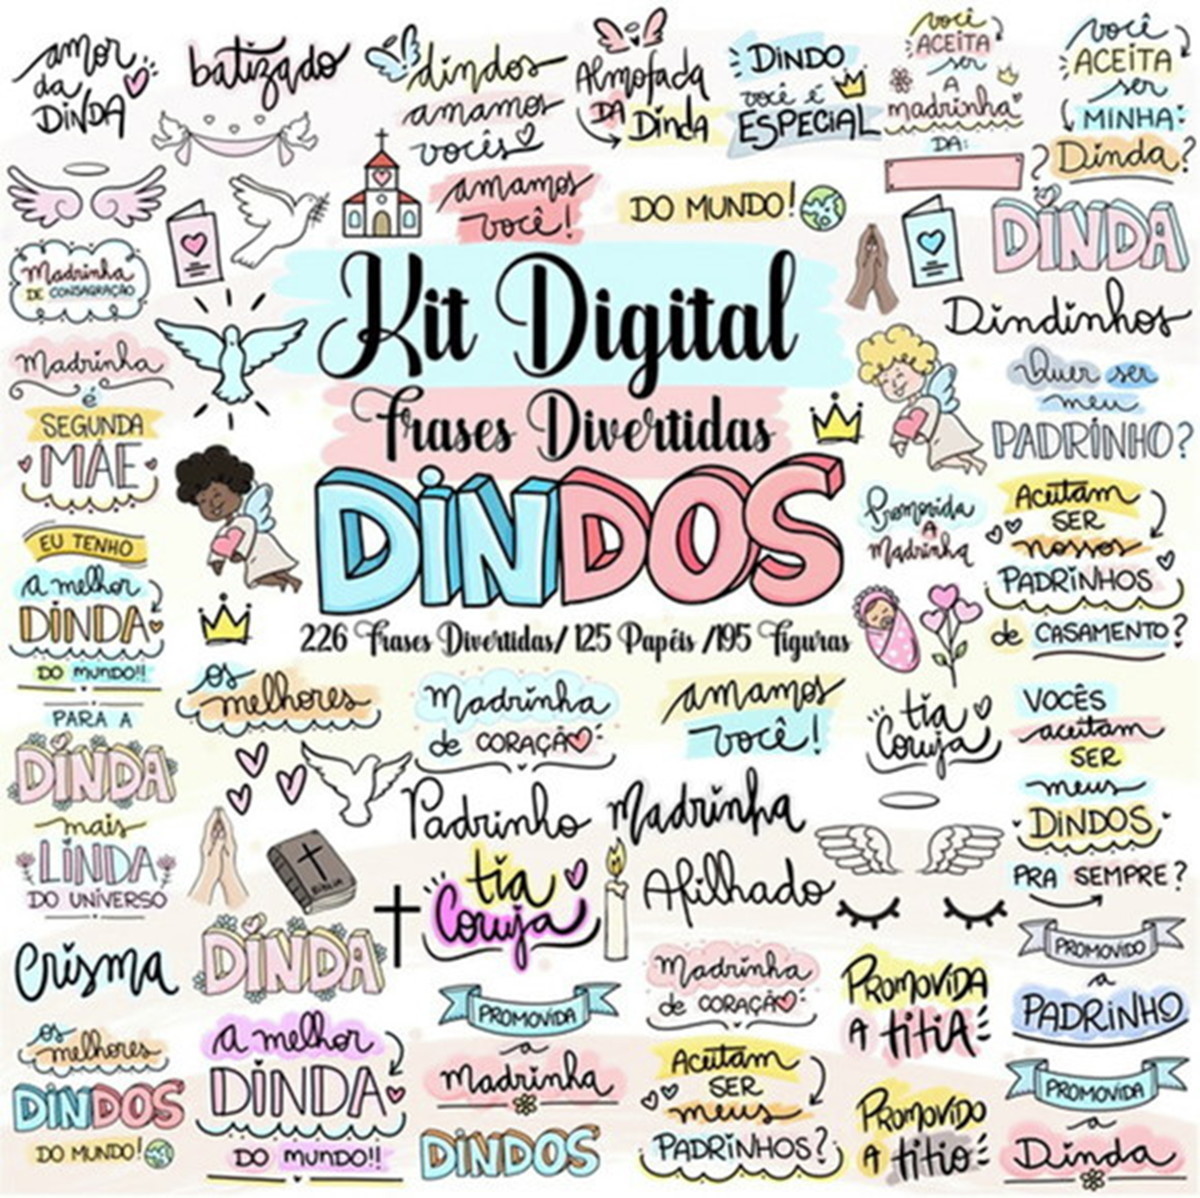 amor
da
DINDA
batizado
dindos
amamos
vocês
Almofada
DA
Dinda
DINDO
você é
ESPECIAL
você
ACEITA
ser
A
madrinha
DA:
?
você
ACEITA
ser
MINHA:
Dinda?
amamos
você!
DO MUNDO!
DINDA
Madrinha
DE CONSAGRAÇÃO
Kit Digital
Frases Divertidas
DINDOS
226 Frases Divertidas/ 125 Papéis /195 Figuras
Dindinhos
Madrinha
é
SEGUNDA
MÃE
Quer ser
meu
PADRINHO?
EU TENHO
a melhor
DINDA
DO mundo!!
Promovida
A
Madrinha
Aceitam
SER
nossos
PADRINHOS
de CASAMENTO?
PARA A
DINDA
mais
LINDA
DO UNIVERSO
os
melhores
Madrinha
de CORAÇÃO
amamos
você!
tia
Coruja
VOCÊS
aceitam
SER
meus
DINDOS
PRA SEMPRE?
Padrinho
Madrinha
BIBLIA
tia
Coruja
Afilhado
Crisma
DINDA
PROMOVIDA
a
Madrinha
Madrinha
de CORAÇÃO
PROMOVIDA
A titiA
PROMOVIDO
a
PADRINHO
os
melhores
DINDOS
DO MUNDO!
a melhor
DINDA
DO mundo!!
DINDOS
Aceitam
SER
meus
PADRINHOS?
PROMOVIDO
A titio
PROMOVIDA
a
Dinda